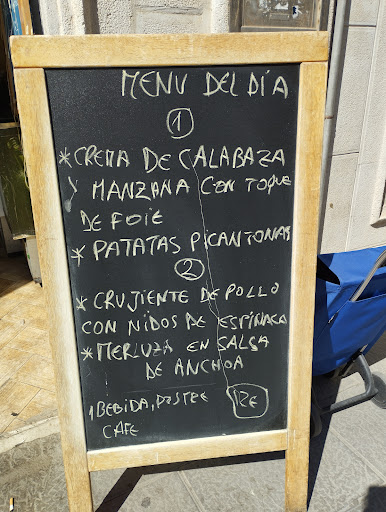 MENU DEL DÍA
1
* CREMA DE CALABAZA
Y MANZANA CON TOQUE
DE FOIE
* PATATAS PICANTONAS
2
* CRUJIENTE DE POLLO
CON NIDOS DE ESPINACA
* MERLUZA EN SALSA
DE ANCHOA
1 BEBIDA, POSTRE
CAFE
12€